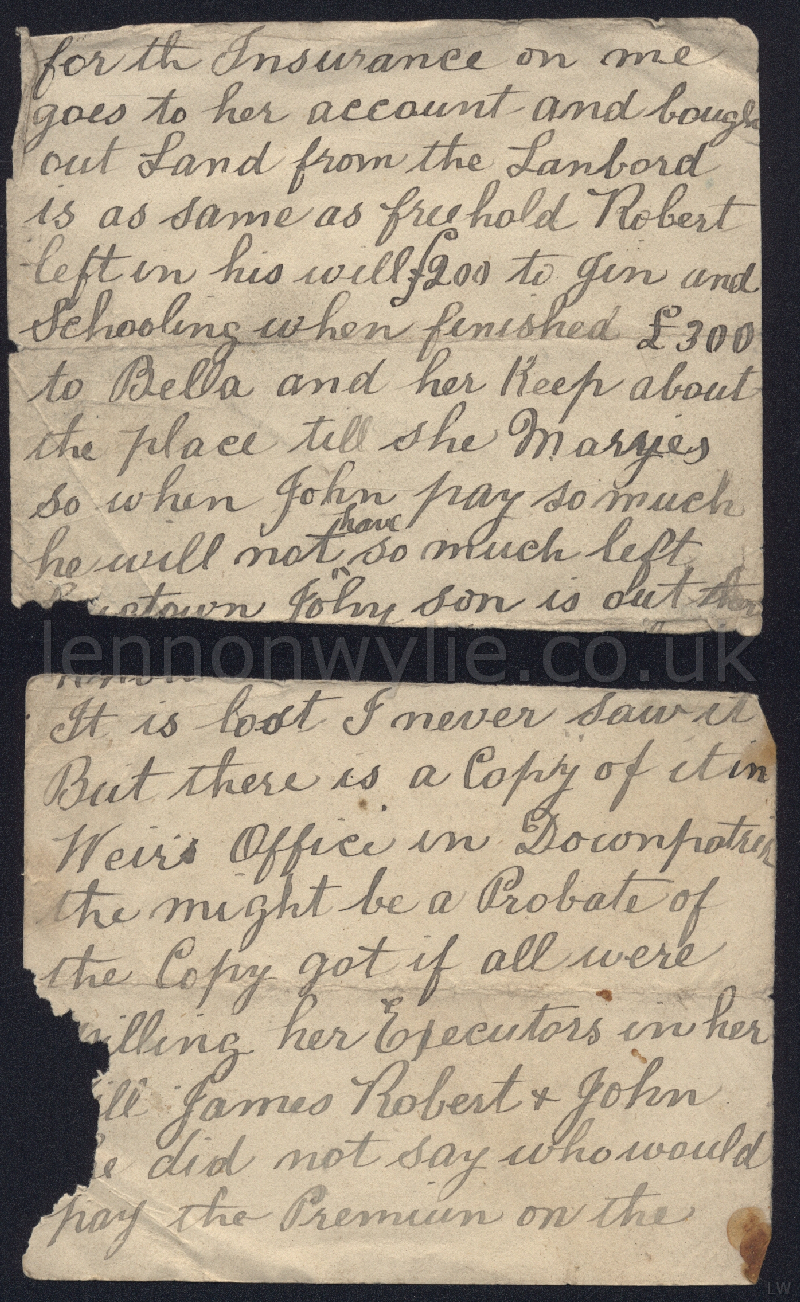 for th Insurance on me
goes to her account and bough
out Land from the Lanbord
is as same as freehold Robert
left in his will £200 to Jin and
Schooling when finished £300
to Bella and her Keep about
the place till she Maryies
so when John pay so much
he will not have so much left
John son is out
lennonwylie.co.uk
It is lost I never saw it
But there is a Copy of it in
Weirs Office in Downpatrick
the might be a Probate of
the Copy got if all were
willing her Executors in her
ill James Robert & John
e did not say who would
pay the Premium on the
LW